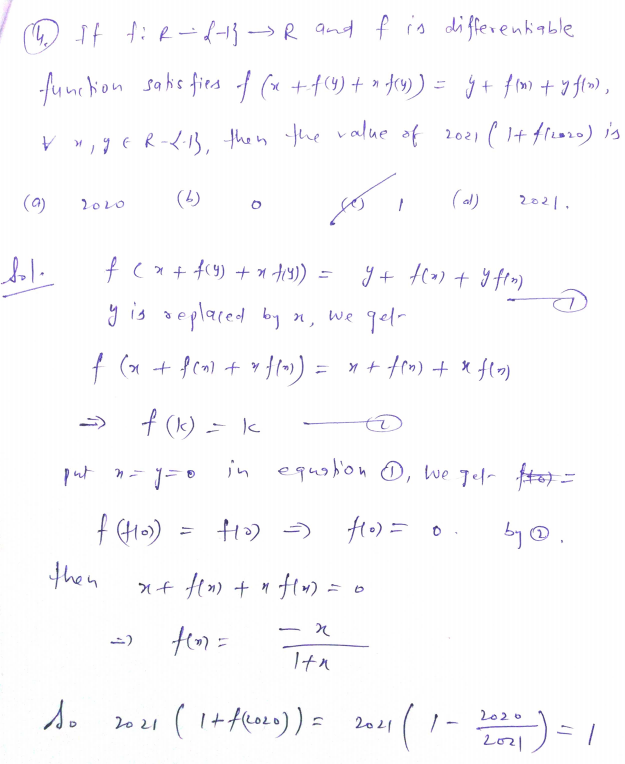 4. If f: R - {-1} → R and f is differentiable
function satisfies f (x + f(y) + x f(y)) = y + f(x) + y f(x),
∀ x, y ∈ R - {-1}, then the value of 2021 (1 + f(2020)) is
(a) 2020 (b) 0 (c) 1 (d) 2021.
Sol. f (x + f(y) + x f(y)) = y + f(x) + y f(x) — ①
y is replaced by x, we get
f (x + f(x) + x f(x)) = x + f(x) + x f(x)
⇒ f(k) = k — ②
put x = y = 0 in equation ①, we get f(0) =
f (f(0)) = f(0) ⇒ f(0) = 0. by ②.
then x + f(x) + x f(x) = 0
⇒ f(x) = -x / 1+x
So 2021 (1 + f(2020)) = 2021 (1 - 2020/2021) = 1